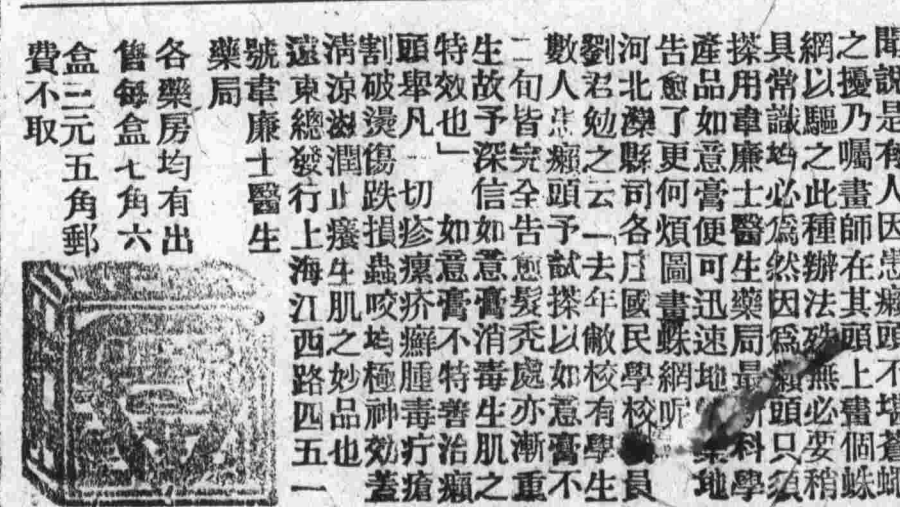 聞說是有人因患癩頭不堪蒼蠅
之擾乃囑畫師在其頭上畫個蛛
網以驅之此種辦法殊無必要稍
具常識均必爲然因爲癩頭只須
搽用韋廉士醫生藥局最新科學
產品如意膏便可迅速地地
告愈了更何煩圖畫蛛網呢
河北灤縣司各庄國民學校員
劉君勉之云「去年敝校有學生
數人患癩頭予試搽以如意膏不
二旬皆完全告愈髮禿處亦漸重
生故予深信如意膏消毒生肌之
特效也」 如意膏不特善治癩
頭舉凡一切疹瘰疥癬腫毒疔瘡
割破燙傷跌損蟲咬均極神效蓋
清涼滋潤止癢生肌之妙品也
遠東總發行上海江西路四五一
號韋廉士醫生
藥局
各藥房均有出
售每盒七角六
盒三元五角郵
費不取